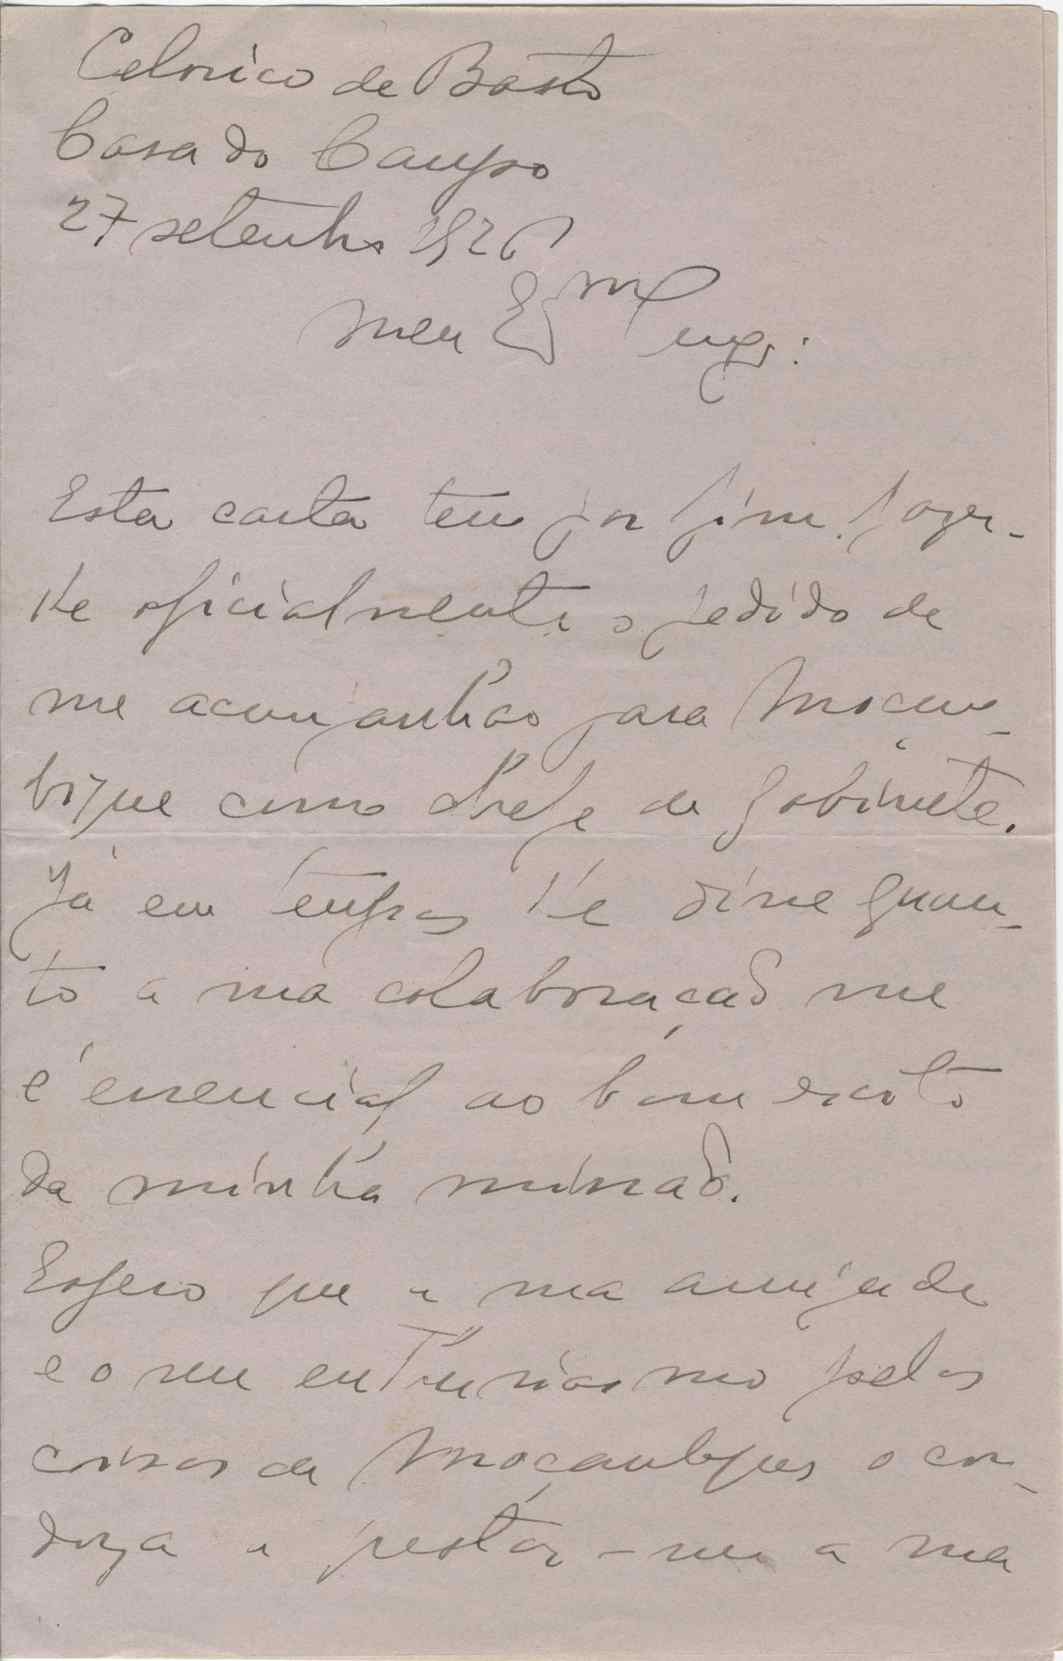 Celorico de Basto
Casa do Campo
27 setembro 1926
Meu Exmo
Esta carta tem por fim fazer-
lhe oficialmente o pedido de
me acompanhar para Moçam-
bique como chefe de gabinete.
Já em tempos lhe disse quan-
to a sua colaboração me
é essencial ao bom exito
da minha missão.
Espero que a sua amizade
e o seu entusiasmo pelas
coisas de Moçambique o con-
duza a prestar-me a sua